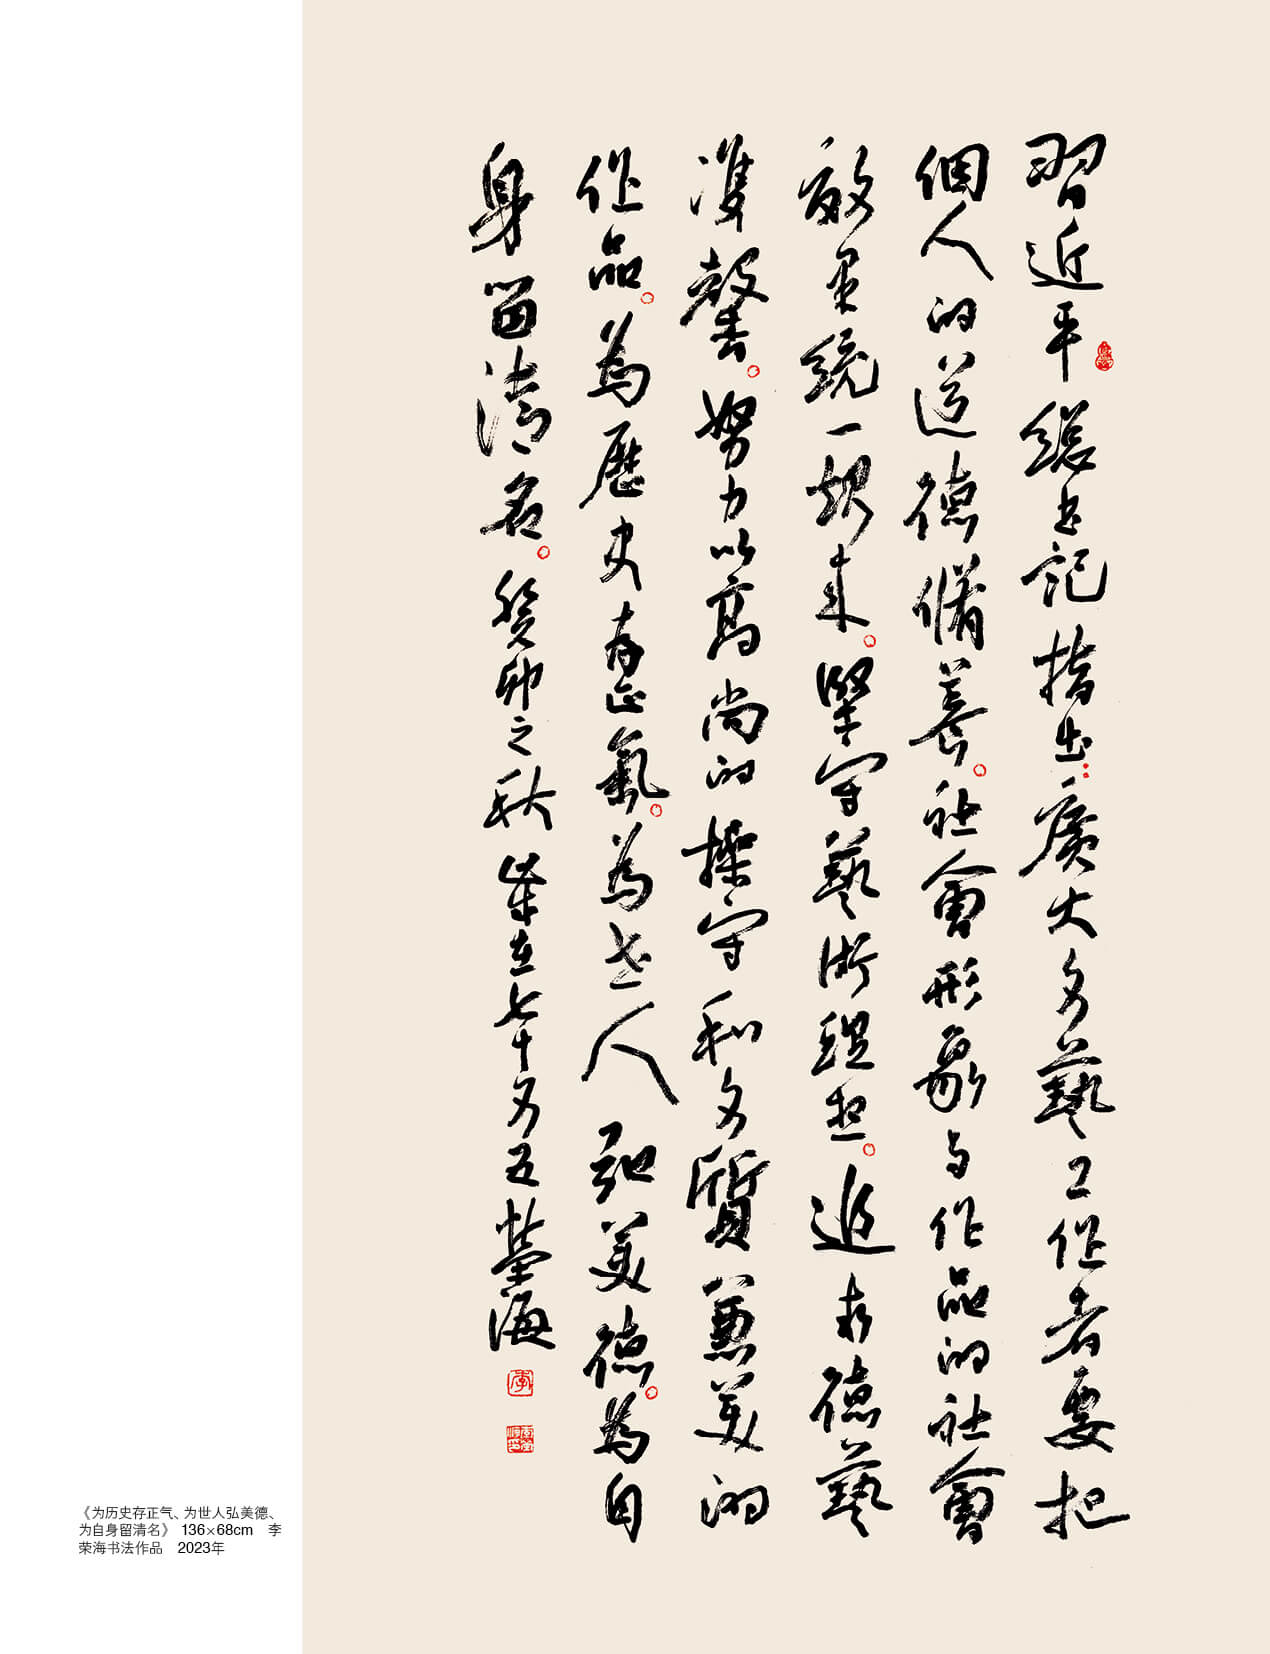 習近平總书記指出：廣大文藝工作者要把
個人的道德脩養。社會形象与作品的社會
效果統一起来。堅守藝術理想。追求德藝
雙馨。努力以高尚的操守和文質兼美的
作品。為歷史存正氣。為世人弘美德。為自
身留清名。癸卯之秋 歲在七十又五 榮海
李
《为历史存正气、为世人弘美德、
为自身留清名》 136×68cm 李
荣海书法作品 2023年